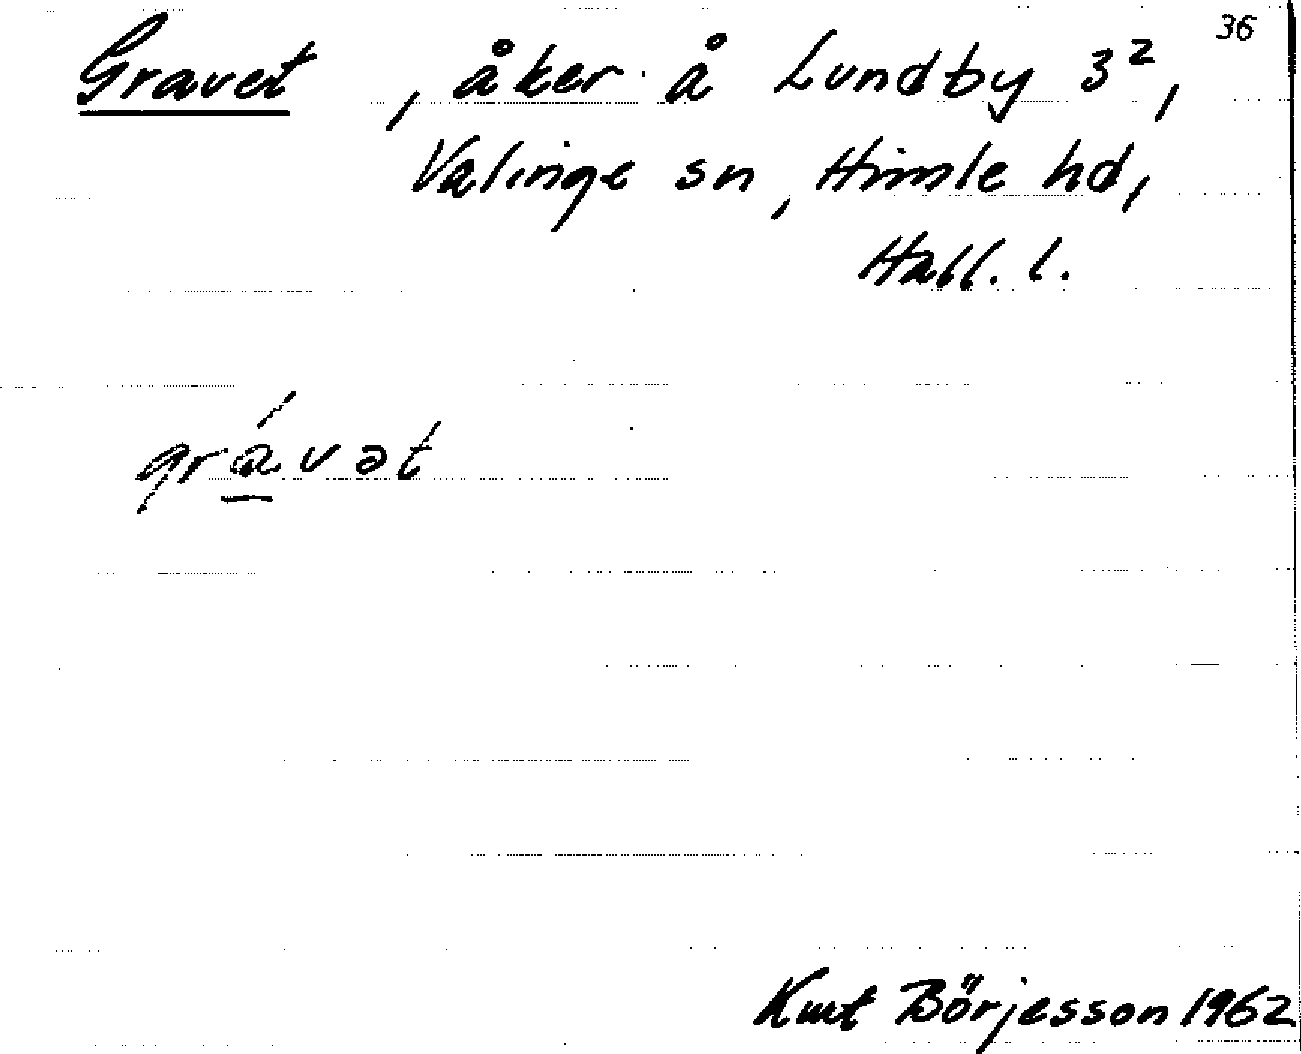 36
Gravet, åker å Lundby 3²,
Valinge sn, Himle hd,
Hall. l.
grávət
Kurt Börjesson 1962